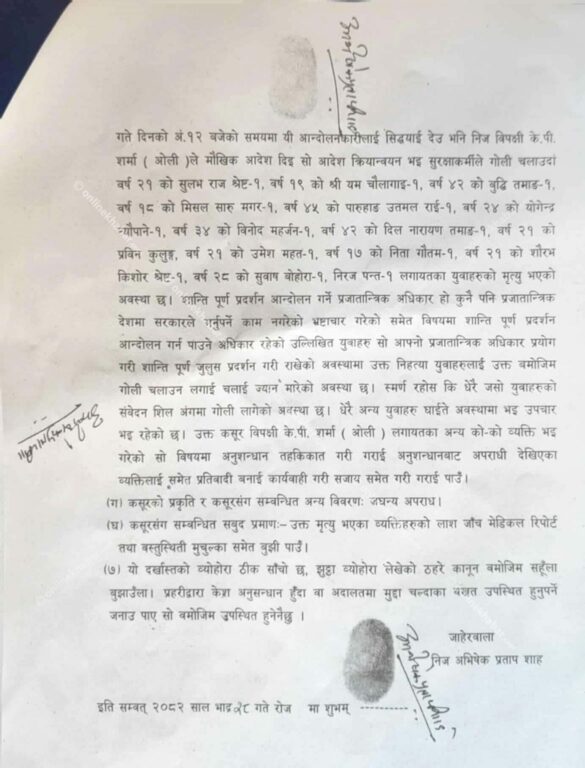 गते दिनको अं.१२ बजेको समयमा यी आन्दोलनकारीलाई सिद्धयाई देउ भनि निज विपक्षी के.पी.
शर्मा ( ओली )ले मौखिक आदेश दिइ सो आदेश क्रियान्वयन भइ सुरक्षाकर्मीले गोली चलाउदां
वर्ष २१ को सुलभ राज श्रेष्ट-१, वर्ष १९ को श्री यम चौलागाइ-१, वर्ष ४२ को बुद्धि तमाङ-१,
वर्ष १८ को मिसल सारु मगर-१, वर्ष ४५ को पारुहाङ उतमल राई-१, वर्ष २४ को योगेन्द्र
न्यौपाने-१, वर्ष ३४ को विनोद महर्जन-१, वर्ष ४२ को दिल नारायण तमाङ-१, वर्ष २१ को
प्रविन कुलुङ्ग, वर्ष २१ को उमेश महत-१, वर्ष १७ को निता गौतम-१, वर्ष २१ को शौरभ
किशोर श्रेष्ट-१, वर्ष २८ को सुवाष बोहोरा-१, निरज पन्त-१ लगायतका युवाहरुको मृत्यु भएको
अवस्था छ। शान्ति पूर्ण प्रदर्शन आन्दोलन गर्ने प्रजातान्त्रिक अधिकार हो कुनै पनि प्रजातान्त्रिक
देशमा सरकारले गर्नुपर्ने काम नगरेको भ्रष्टाचार गरेको समेत विषयमा शान्ति पूर्ण प्रदर्शन
आन्दोलन गर्न पाउने अधिकार रहेको उल्लिखित युवाहरु सो आफ्नो प्रजातान्त्रिक अधिकार प्रयोग
गरी शान्ति पूर्ण जुलुस प्रदर्शन गरी राखेको अवस्थामा उक्त निहत्या युवाहरुलाई उक्त बमोजिम
गोली चलाउन लगाई चलाई ज्यान मारेको अवस्था छ। स्मर्ण रहोस कि धेरै जसो युवाहरुको
संवेदन शिल अंगमा गोली लागेको अवस्था छ। धेरै अन्य युवाहरु घाईते अवस्थामा भइ उपचार
भइ रहेको छ। उक्त कसूर विपक्षी के.पी. शर्मा ( ओली ) लगायतका अन्य को-को व्यक्ति भइ
गरेको सो विषयमा अनुशन्धान तहकिकात गरी गराई अनुशन्धानबाट अपराधी देखिएका
व्यक्तिलाई समेत प्रतिवादी बनाई कार्यवाही गरी सजाय समेत गरी गराई पाउँ।
(ग) कसूरको प्रकृति र कसूरसंग सम्बन्धित अन्य विवरणः जघन्य अपराध।
(घ) कसूरसंग सम्बन्धित सबुद प्रमाणः- उक्त मृत्यु भएका व्यक्तिहरुको लाश जाँच मेडिकल रिपोर्ट
तथा बस्तुस्थिती मुचुल्का समेत बुझी पाउँ।
(७) यो दर्खास्तको व्योहोरा ठीक साँचो छ, झुट्ठा व्योहोरा लेखेको ठहरे कानून वमोजिम सहूँला
बुझाउँला। प्रहरीद्वारा केश्रा अनुसन्धान हुँदा वा अदालतमा मुद्दा चल्दाका बखत उपस्थित हुनुपर्ने
जनाउ पाए सो वमोजिम उपस्थित हुनेनैछु ।
जाहेरवाला
निज अभिषेक प्रताप शाह
इति सम्वत् २०८२ साल भाद्र २८ गते रोज मा शुभम् ----------